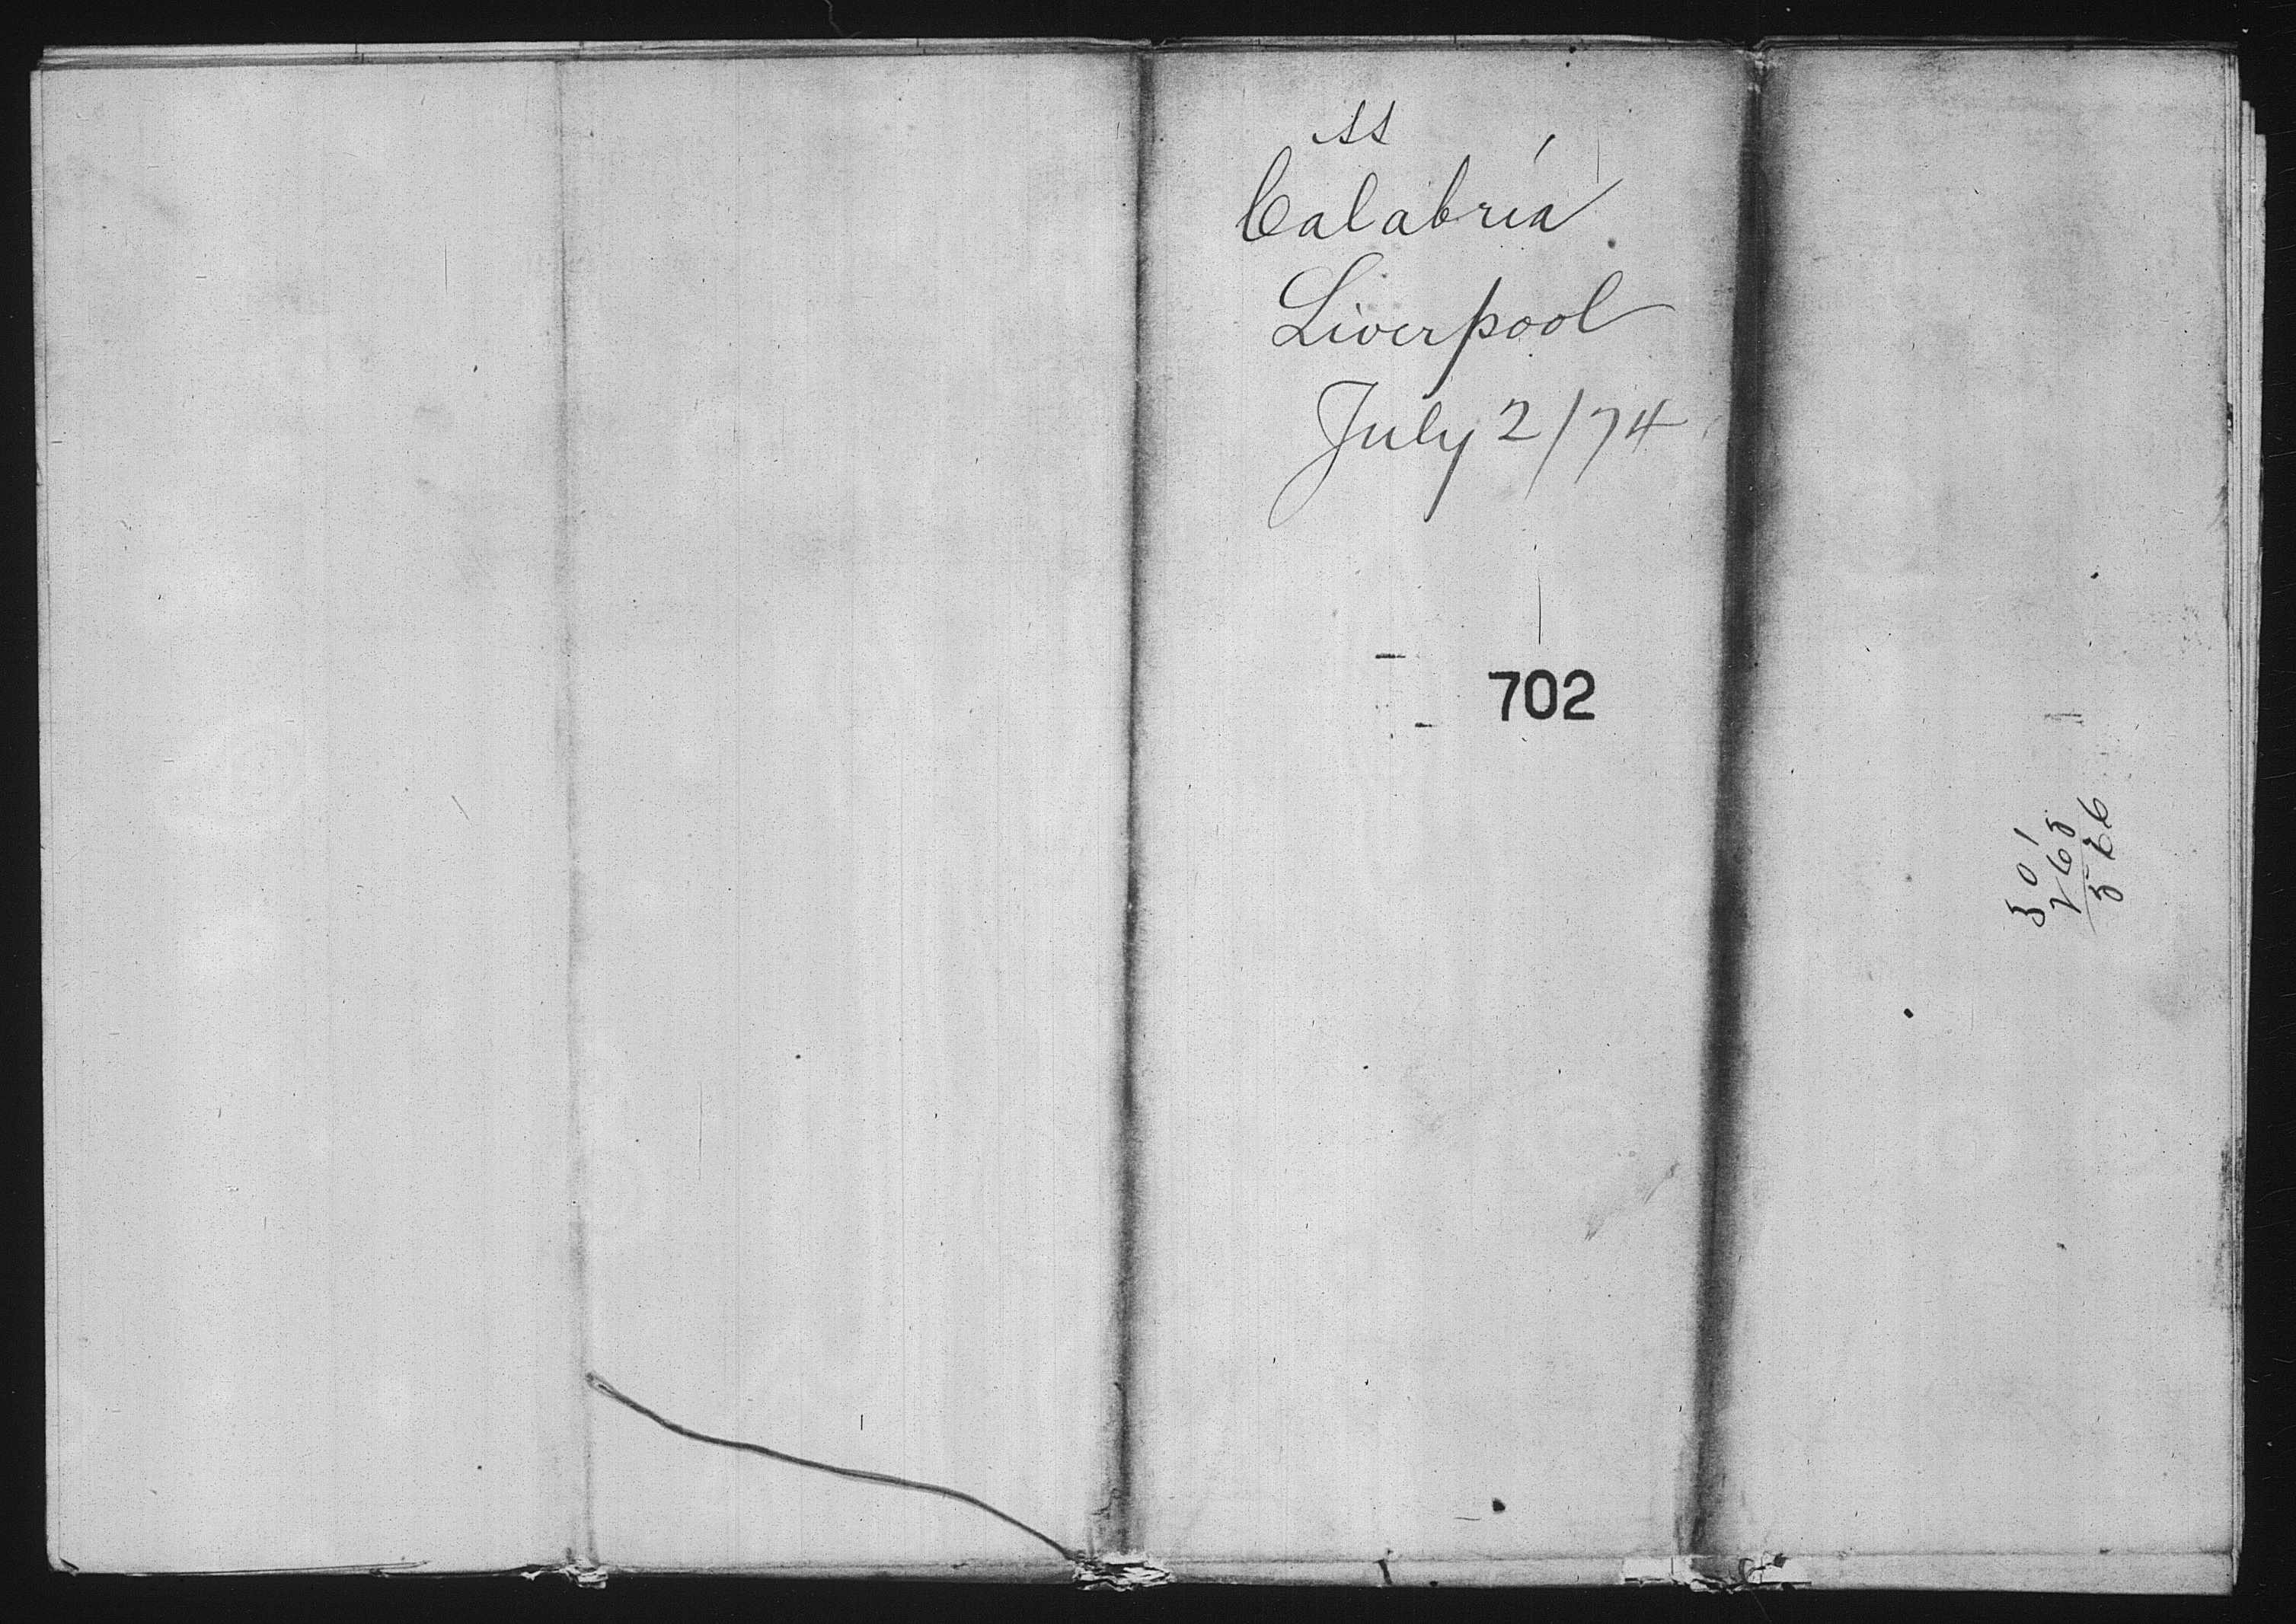 ss
Calabria
Liverpool
July 2/74
702
301
265
566